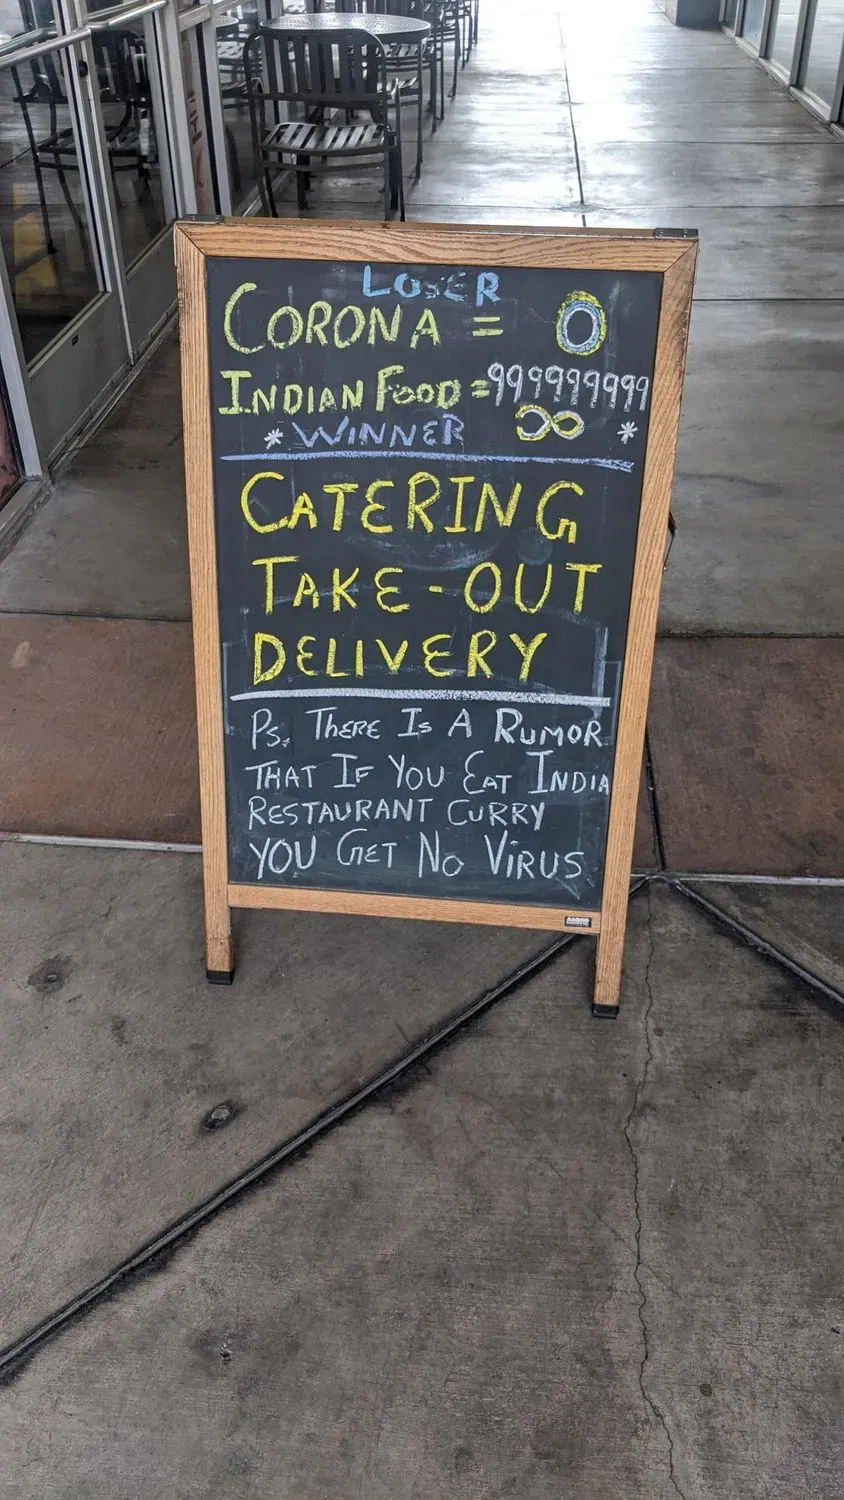 LOSER
CORONA = 0
INDIAN FOOD = 999999999
* WINNER ∞ *
CATERING
TAKE-OUT
DELIVERY
PS, THERE IS A RUMOR
THAT IF YOU EAT INDIA
RESTAURANT CURRY
YOU GET NO VIRUS